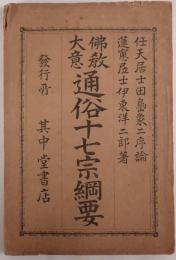 任天居士田島象二序論
蓮窻居士伊東洋二郎著
佛教
大意
通俗十七宗綱要
發行所
其中堂書店